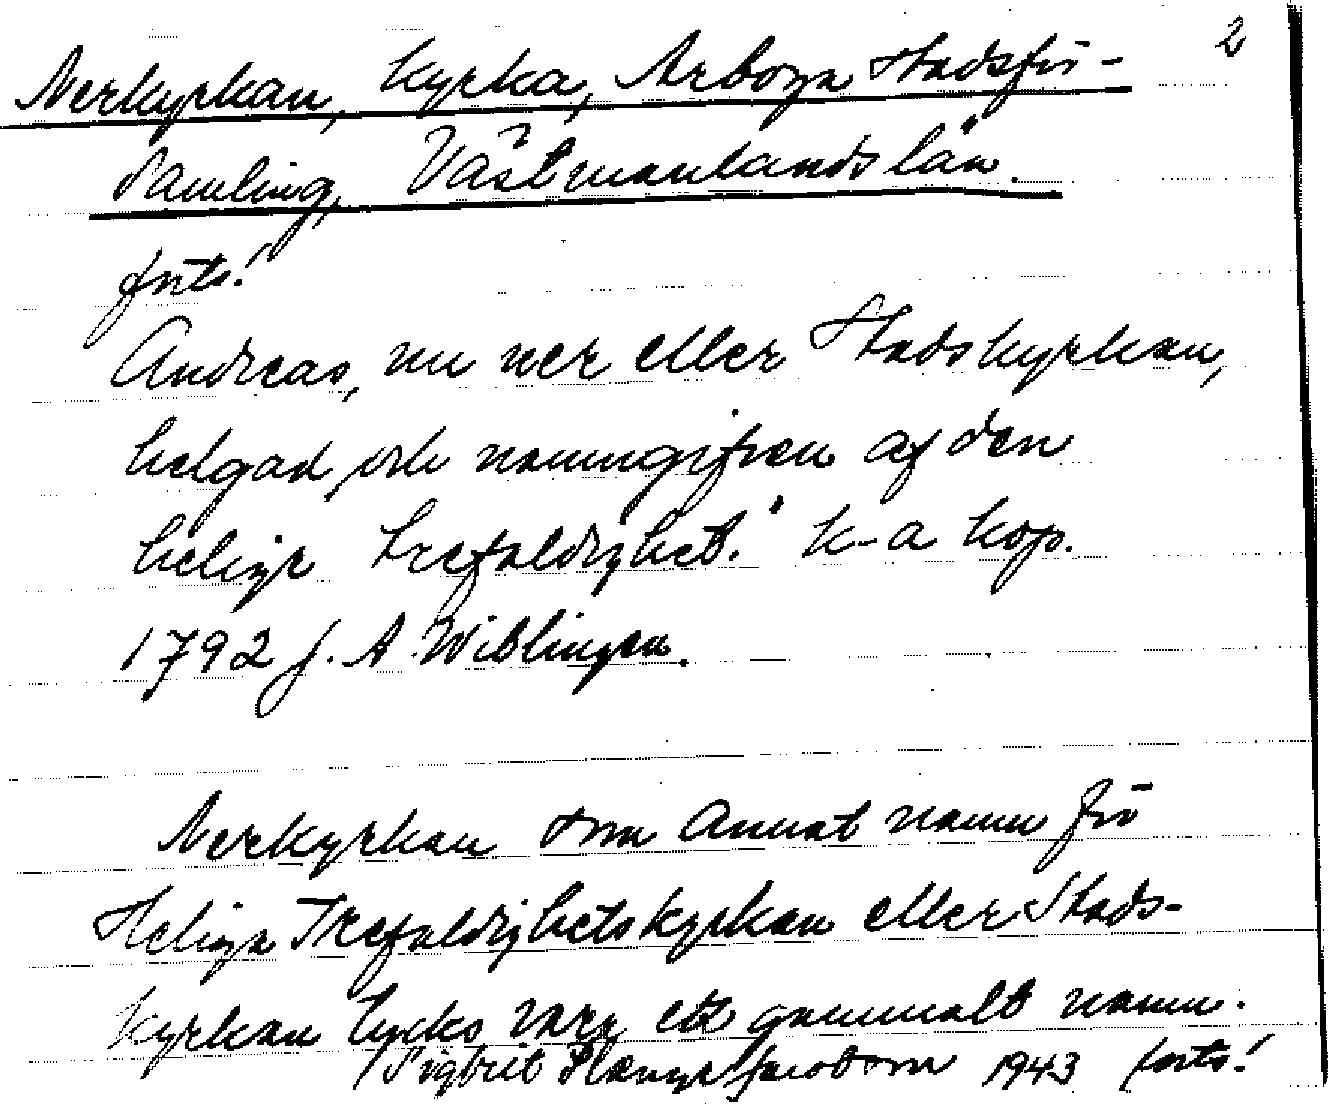 2
Nerkyrkan, kyrka, Arboga stadsför-
samling, Västmanlands län.
forts!
Andreas, nu ner eller Stadskyrkan,
helgad och namngifven af den
heliga trefaldighet." k-a kop.
1792 f. A Wiblingen.
Nerkyrkan som annat namn för
Heliga Trefaldighetskyrkan eller Stads-
kyrkan tycks vara ett gammalt namn.
Sigbrit Jacobson 1943 forts!